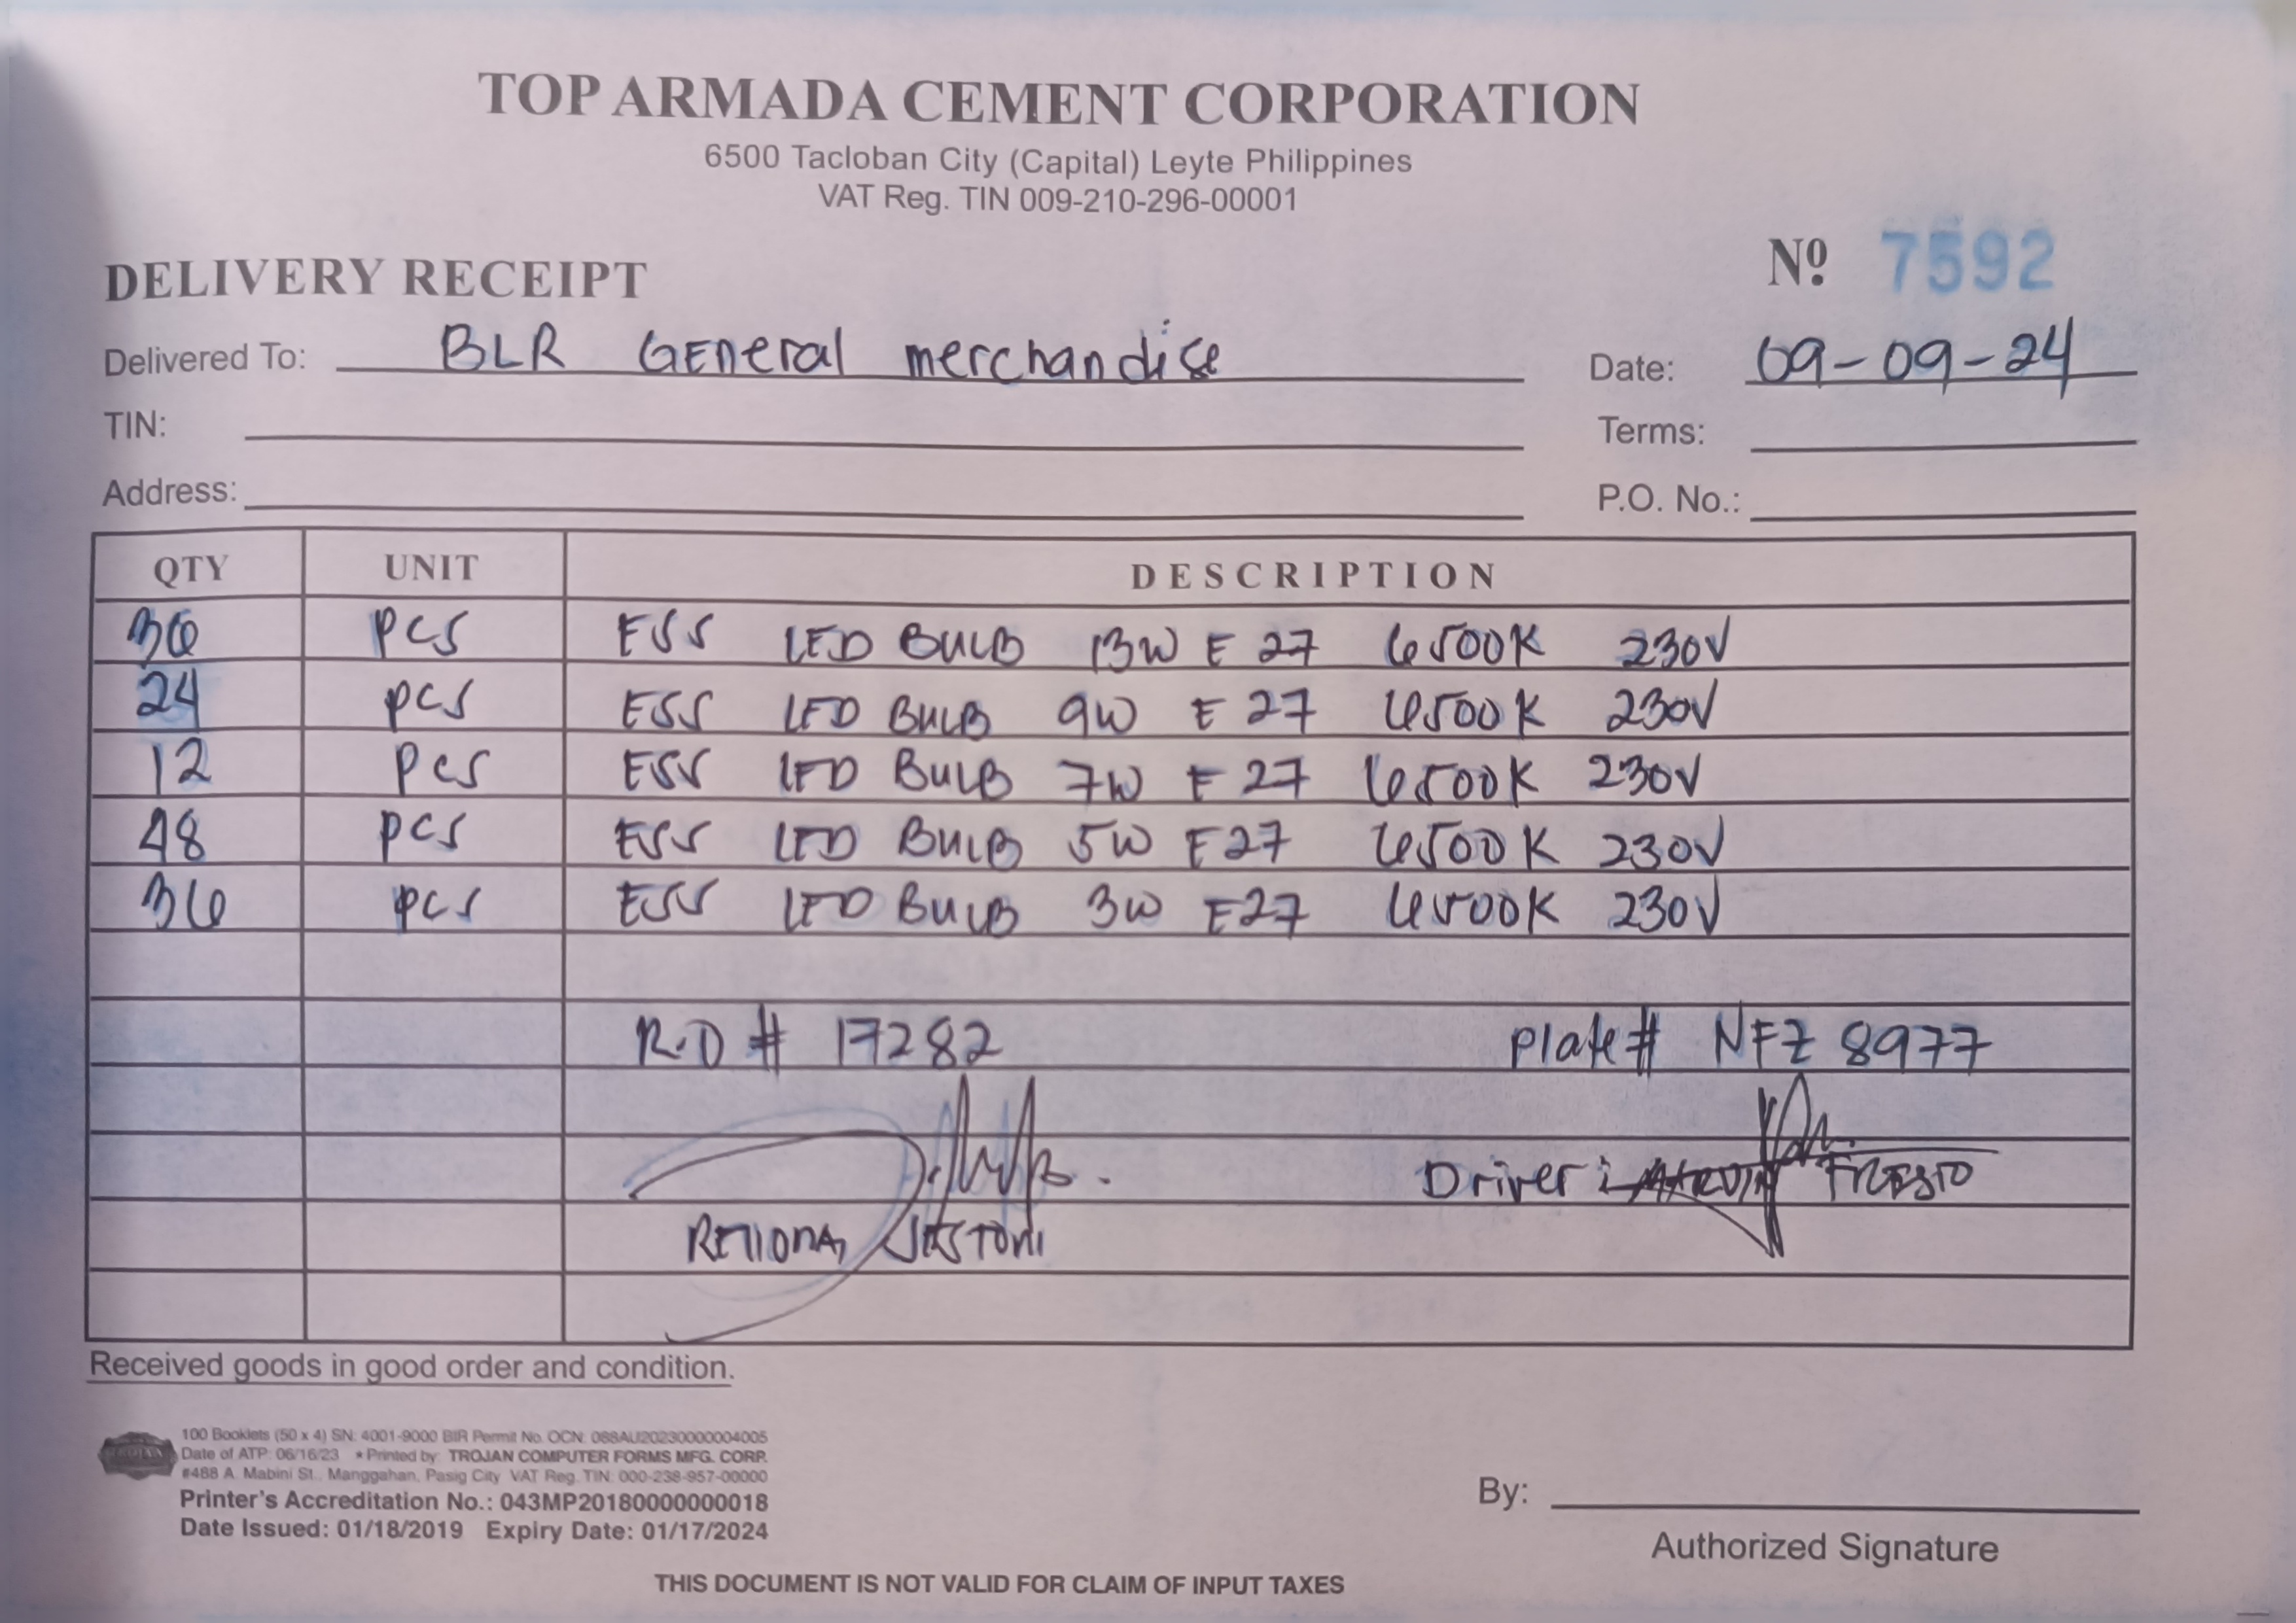 TOP ARMADA CEMENT CORPORATION
6500 Tacloban City (Capital) Leyte Philippines
VAT Reg. TIN 009-210-296-00001
DELIVERY RECEIPT
Nº 7592
Delivered To: BLR General merchandise
Date: 09-09-24
TIN:
Terms:
Address:
P.O. No.:
QTY UNIT DESCRIPTION
36 pcs ESS LED BULB 13W E 27 6500K 230V
24 pcs ESS LED BULB 9W E 27 6500K 230V
12 pcs ESS LED BULB 7W E 27 6500K 230V
48 pcs ESS LED BULB 5W E27 6500K 230V
36 pcs ESS LED BULB 3W E27 6500K 230V
R.D # 17282 Plate# NFZ 8977
Driver:
Received goods in good order and condition.
100 Booklets (50 x 4) SN: 4001-9000 BIR Permit No. OCN: 088AU20230000004005
Date of ATP: 06/16/23 * Printed by: TROJAN COMPUTER FORMS MFG. CORP.
#488 A. Mabini St., Manggahan, Pasig City VAT Reg. TIN: 000-238-957-00000
Printer's Accreditation No.: 043MP20180000000018
Date Issued: 01/18/2019 Expiry Date: 01/17/2024
By:
Authorized Signature
THIS DOCUMENT IS NOT VALID FOR CLAIM OF INPUT TAXES